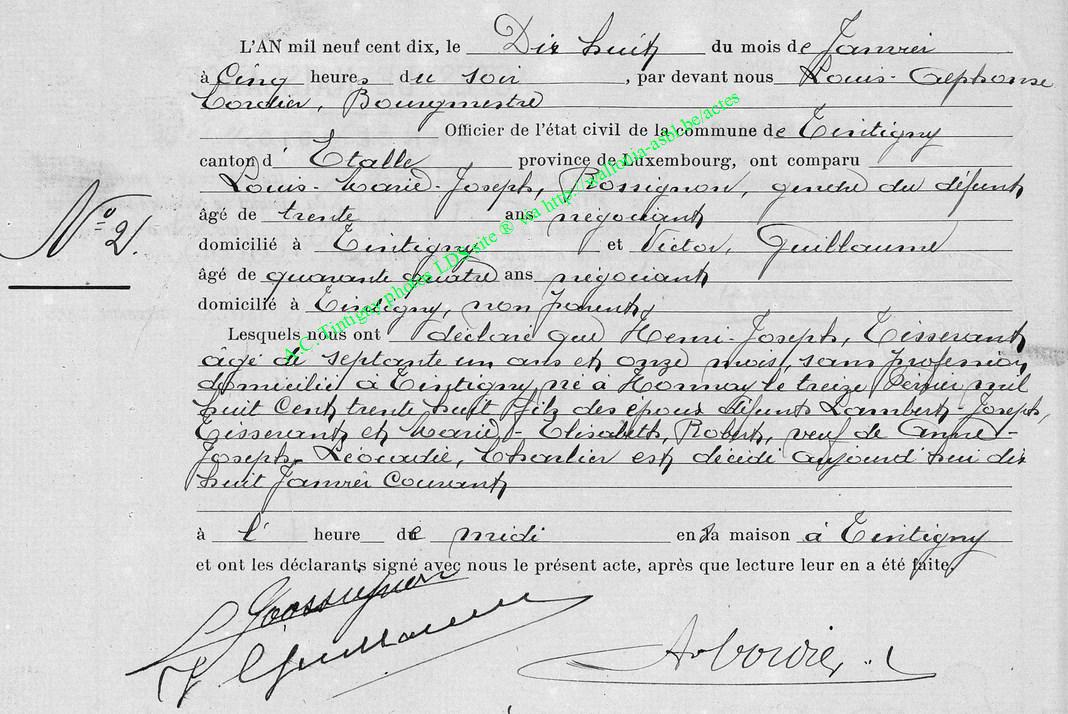 L'AN mil neuf cent dix, le Dix huit du mois de Janvier
à Cinq heures du soir, par devant nous Louis-Alphonse
Cordier, Bourgmestre
Officier de l'état civil de la commune de Tintigny
canton d'Etalle province de Luxembourg, ont comparu
Louis-Marie-Joseph, Rossignon, gendre du défunt
âgé de trente ans négociant
domicilié à Tintigny et Victor, Guillaume
N° 2.
âgé de quarante quatre ans négociant
domicilié à Tintigny, non parents,
Lesquels nous ont déclaré que Henri-Joseph, Tisserant
âgé de septante un ans et onze mois, sans profession
domicilié à Tintigny, né à Honnay le treize février mil
huit Cent trente huit fils des époux défunts Lambert-Joseph,
Tisserant et Marie-Elisabeth, Robert, veuf de Anne-
Joseph-Léocadie, Charlier est décédé aujourd'hui dix
huit Janvier Courant
à l' heure de midi en sa maison à Tintigny
et ont les déclarants signé avec nous le présent acte, après que lecture leur en a été faite.
L Rossignon
V Guillaume
A Cordier
A.C. Tintigny photos LDS site ® via http://wallonia-asbl.be/actes